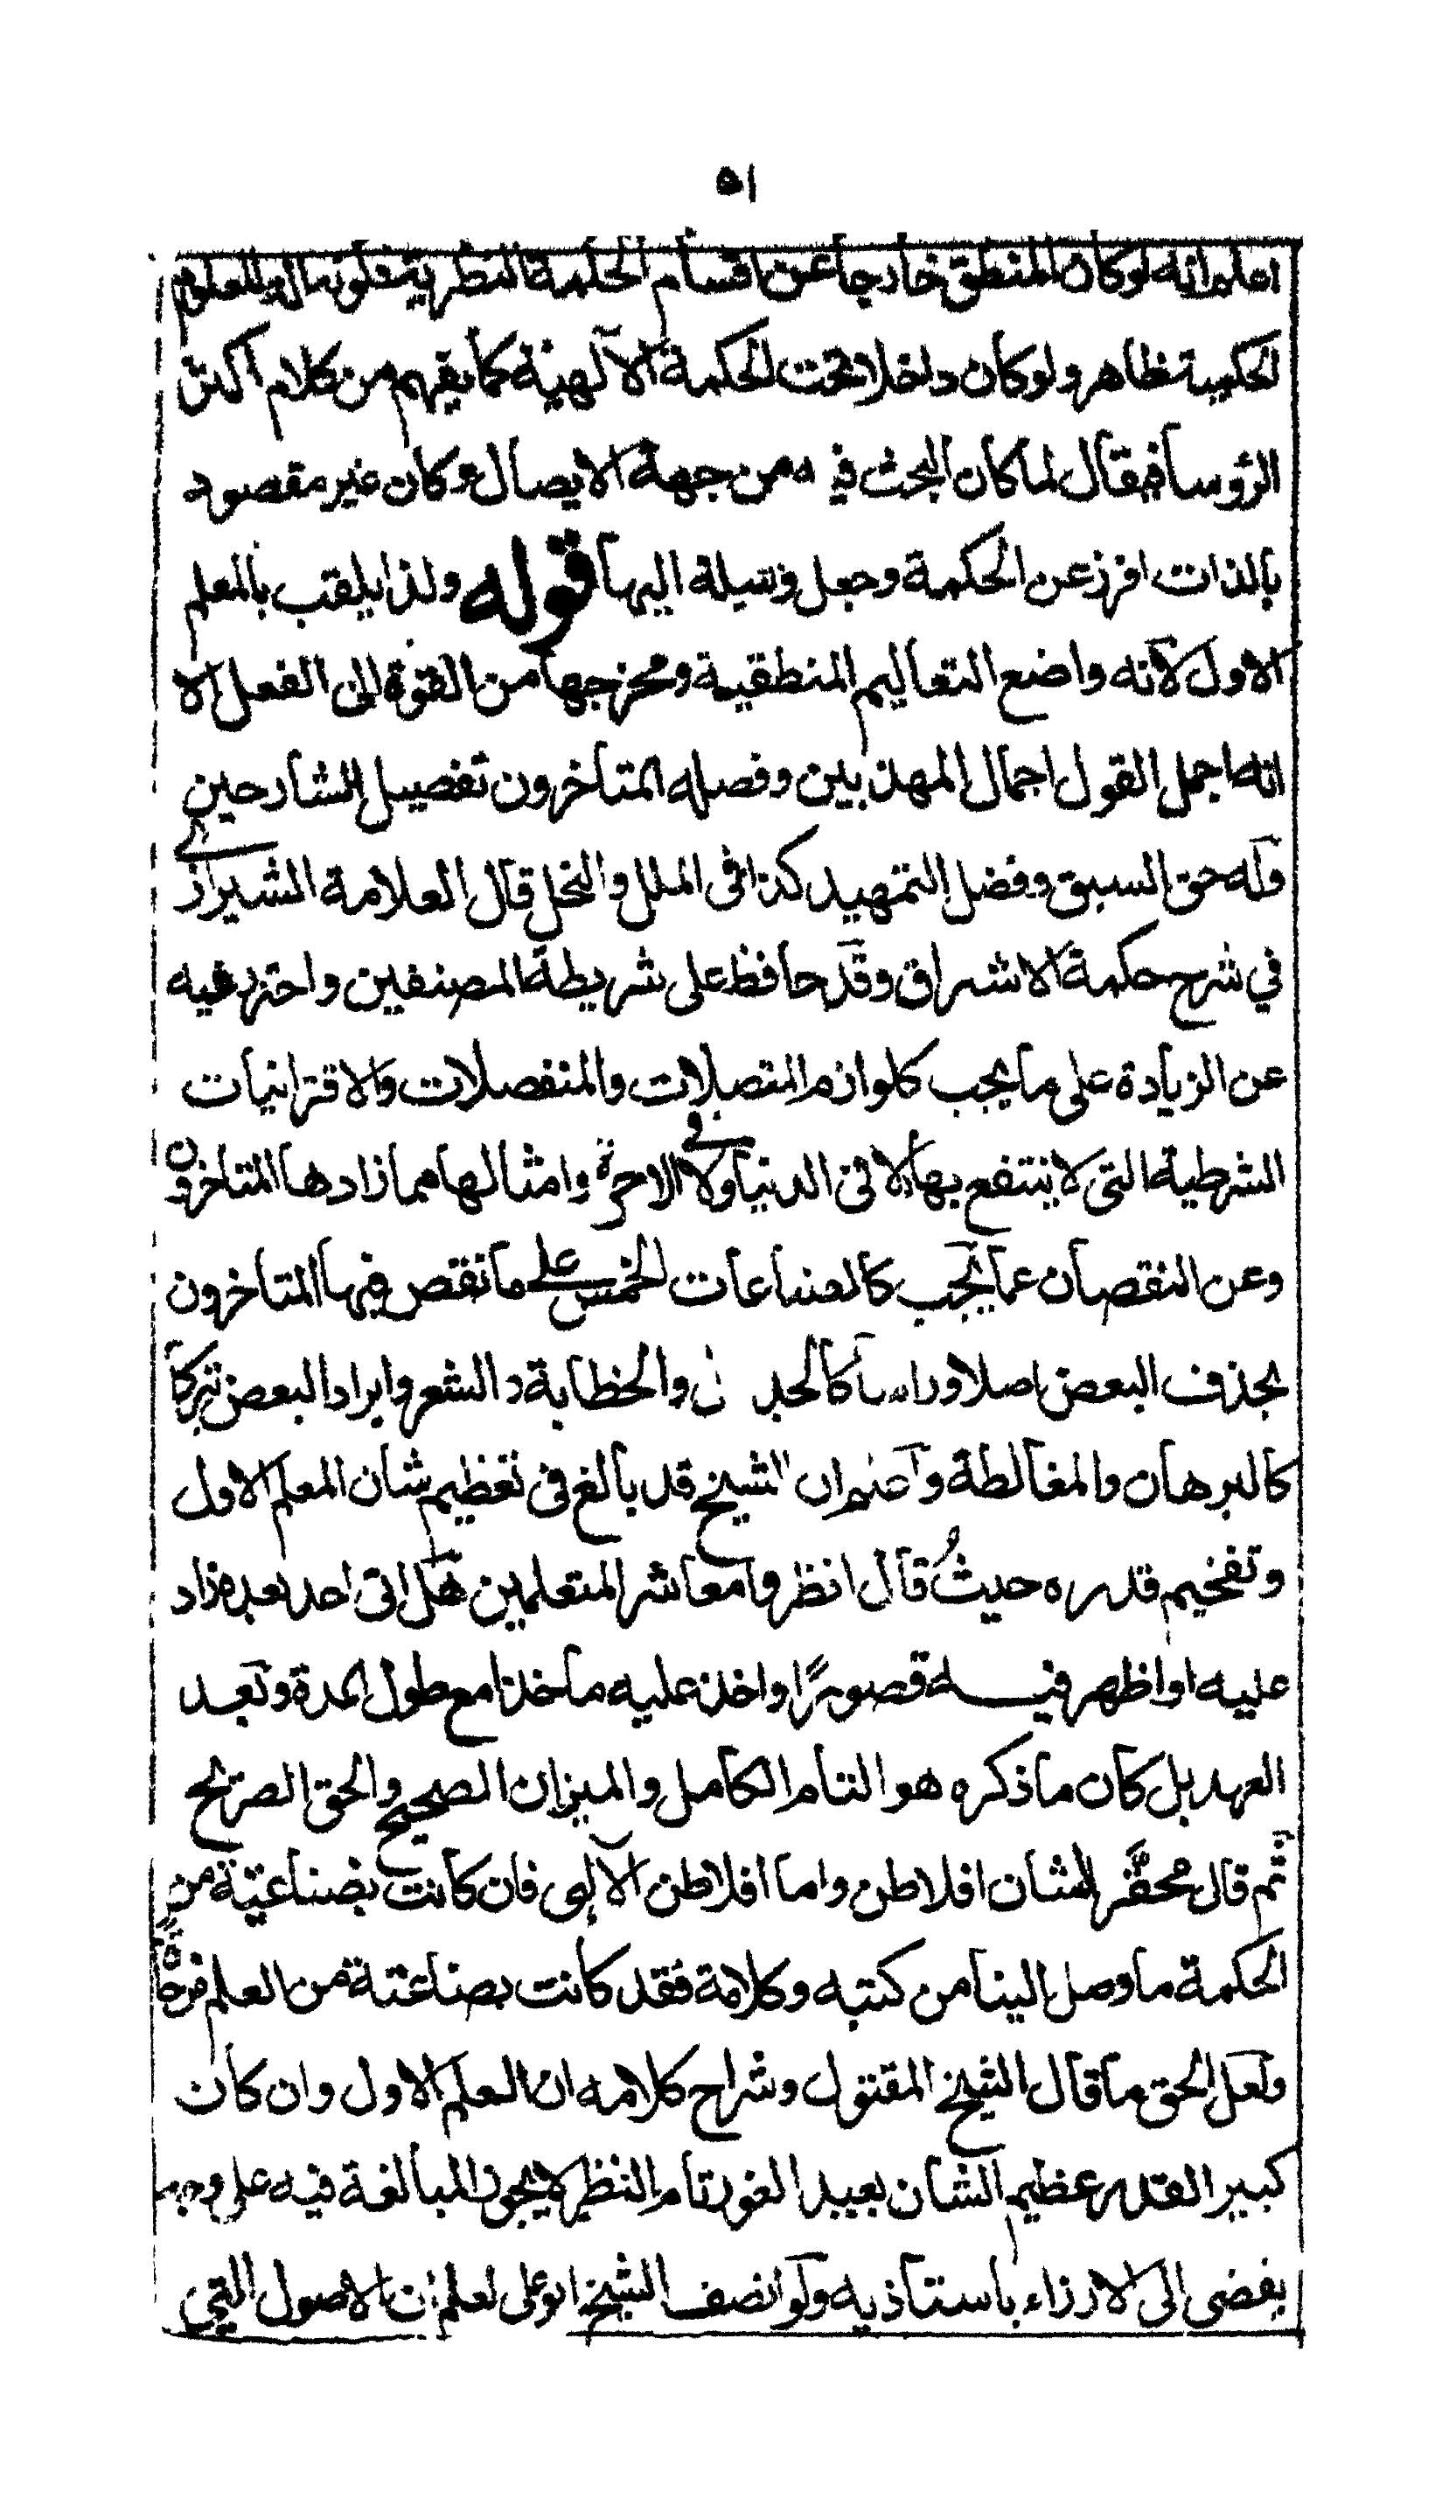 ٥١
اعلم انه لو كان المنطق خارجا عن اقسام الحكمة النظرية فكونه الة للعلوم
الحكمية ظاهر ولو كان داخلا تحت الحكمة الآلهية كما يفهم من كلام اكثر
الرؤسا فيقال لما كان البحث فيه من جهة الايصال وكان غير مقصود
بالذات افرز عن الحكمة وجعل وسيلة اليها قوله ولذا يلقب بالمعلم
الاول لانه واضع التعاليم المنطقية ومخرجها من القوة الى الفعل الا
انه اجمل القول اجمال المهذبين وفصله المتاخرون تفصيل الشارحين
وله حق السبق وفضل التمهيد كذا فى الملل والنحل قال العلامة الشيرازے
في شرح حكمة الاشراق وقد حافظ على شريطة المصنفين واحترز فيه
عن الزيادة على ما يجب كلوازم المتصلات والمنفصلات والاقترانيات
الشرطية التى لا ينتفع بها لا فى الدنيا ولا فى الاخرة وامثالها مما زادها المتاخرون
وعن النقصان عما يجب كالصناعات الخمس على ما نقص فيها المتاخرون
بحذف البعض اصلا وراسا كالجدل والخطابة والشعر وايراد البعض تبركا
كالبرهان والمغالطة واعلم ان الشيخ قد بالغ فى تعظيم شان المعلم الاول
وتفخيم قدره حيثُ قال انظروا معاشر المتعلمين هل اتى احد بعده زاد
عليه او اظهر فيه قصورًا واخذ عليه ماخذا مع طول المدة وبعد
العهد بل كان ما ذكره هو التام الكامل والميزان الصحيح والحق الصريح
ثم قال محقّرا لشان افلاطن واما افلاطن الآلهى فان كانت بضاعته من
الحكمة ما وصل الينا من كتبه وكلامه فقد كانت بضاعته من العلم مزجاةً
ولعل الحق ما قال الشيخ المقتول وشراح كلامه ان المعلم الاول وان كان
كبير القدر عظيم الشان بعيد الغور تام النظر لا يجوز المبالغة فيه على وجه
يفضى الى الازراء باستاذيه ولو انصف الشيخ ابو على لعلم ان الاصول التي